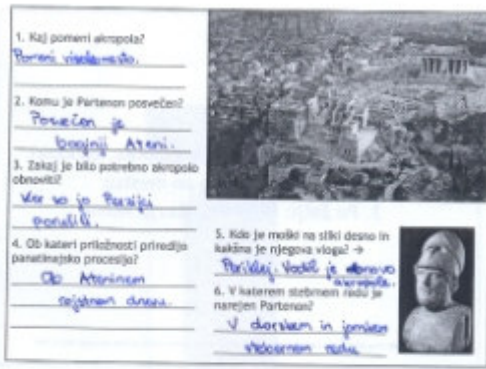 1. Kaj pomeni akropola?
Pomeni visoko mesto.
2. Komu je Partenon posvečen?
Posvečen je
boginji Ateni.
3. Zakaj je bilo potrebno akropolo
obnoviti?
Ker so jo Perzijci
porušili.
4. Ob kateri priložnosti priredijo
panatenajsko procesijo?
Ob Ateninem
rojstnem dnevu.
5. Kdo je moški na sliki desno in
kakšna je njegova vloga? →
Periklej. Vodil je obnovo
akropole.
6. V katerem stebrnem redu je
narejen Partenon?
V dorskem in jonskem
stebernem redu